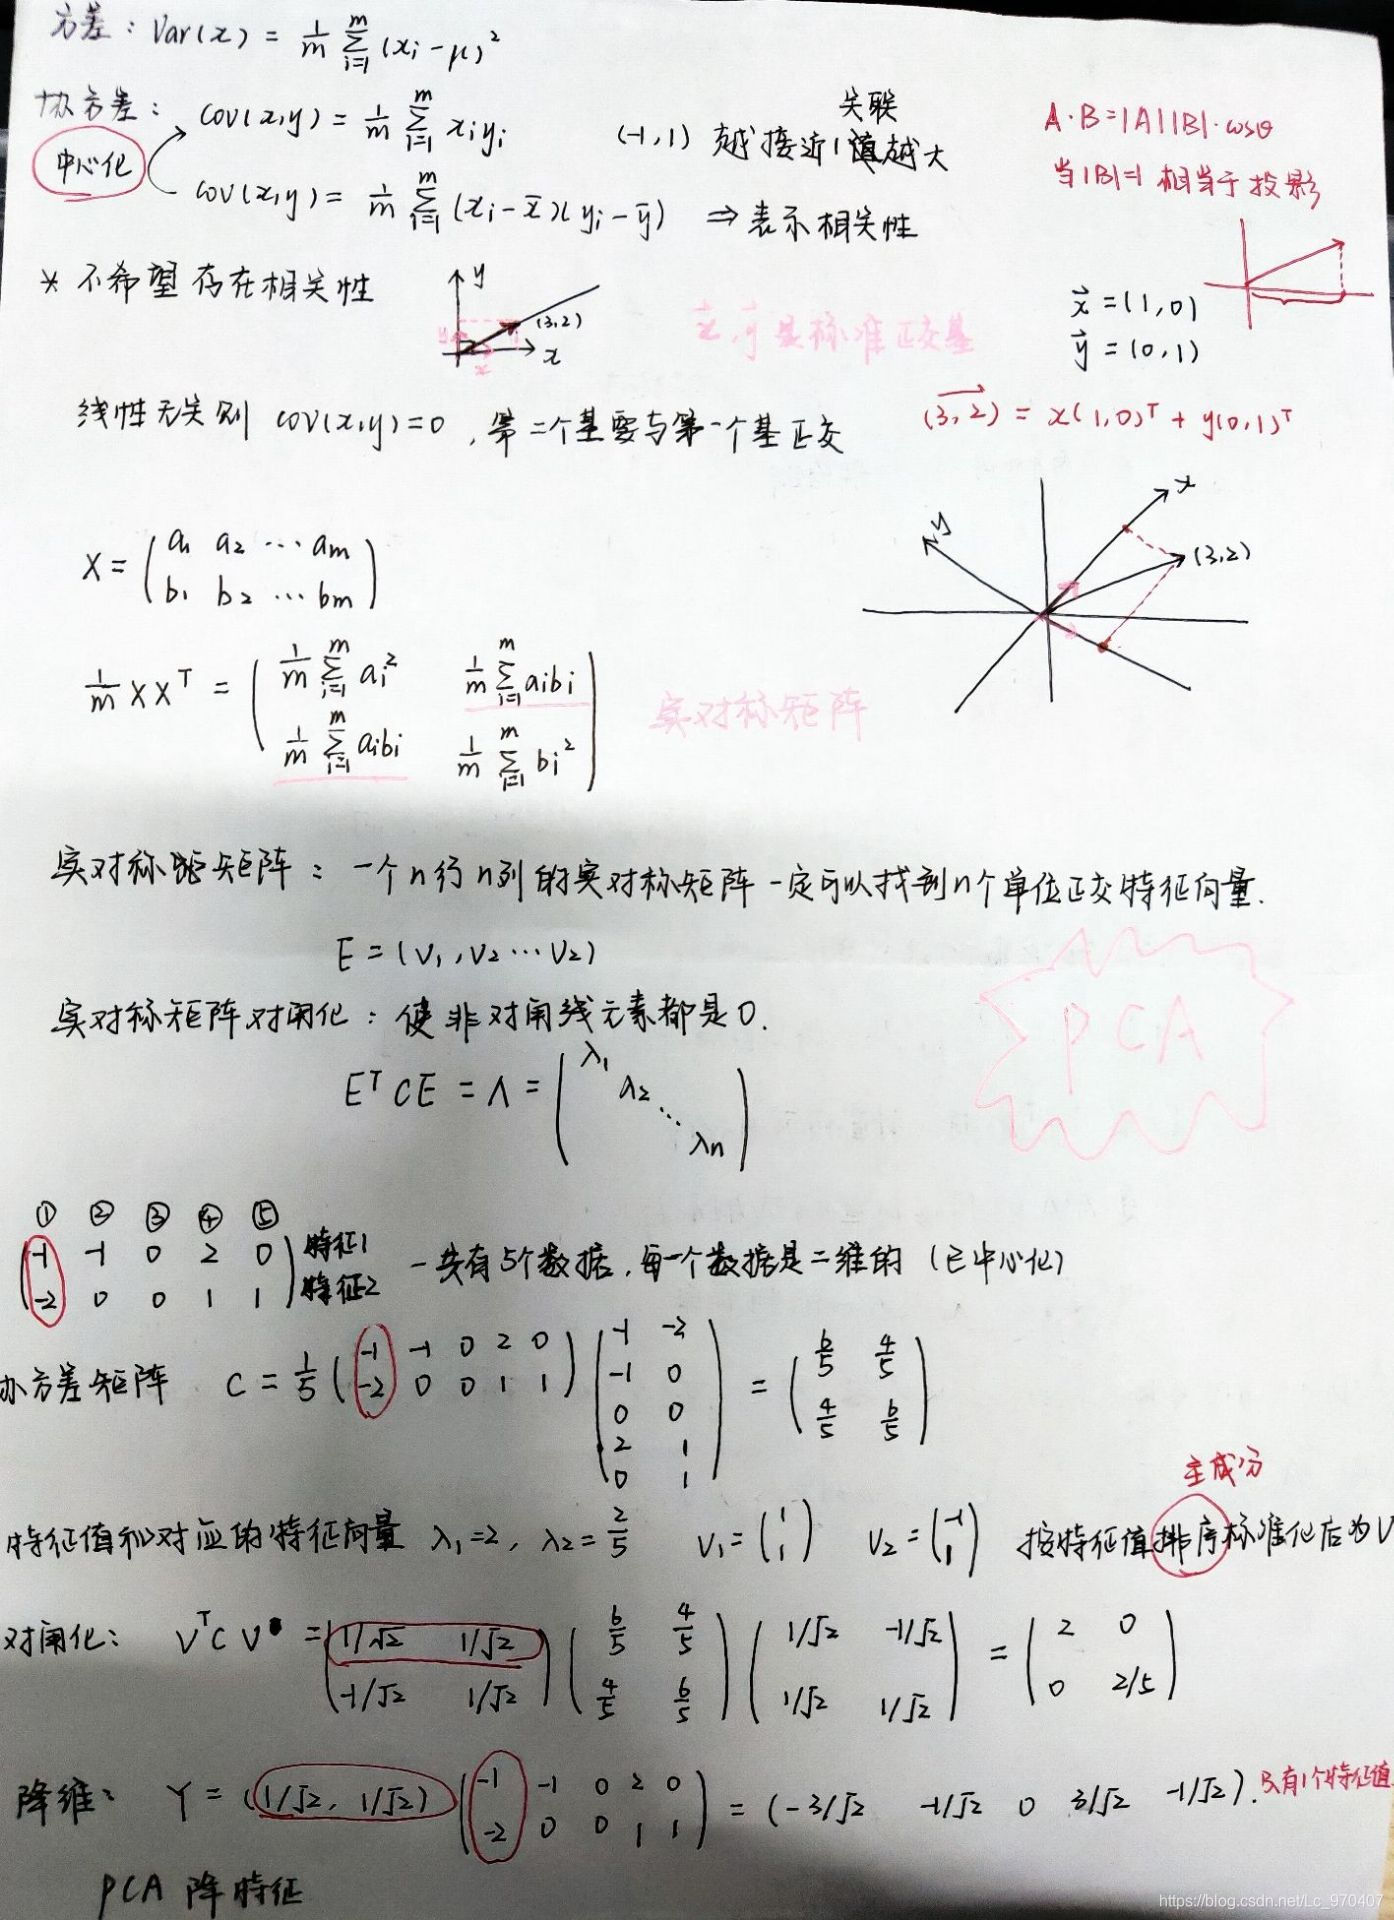 方差: Var(x) = 1/m ∑_{i=1}^{m} (xi - μ)²
协方差: cov(x,y) = 1/m ∑_{i=1}^{m} xiyi
(-1,1) 越接近1值越大
关联
A·B=|A||B|·cosθ
当|B|=1 相当于投影
中心化
cov(x,y) = 1/m ∑_{i=1}^{m} (xi - x̄)(yi - ȳ) ⇒ 表示相关性
* 不希望存在相关性
y
(3,2)
x
y
x
x⃗,y⃗是标准正交基
x⃗ = (1,0)
y⃗ = (0,1)
线性无关则 cov(x,y)=0, 第二个基要与第一个基正交
(3,2) = x(1,0)ᵀ + y(0,1)ᵀ
x
y
(3,2)
X = ( a1 a2 ⋯ am
b1 b2 ⋯ bm )
1/m XXᵀ = ( 1/m ∑_{i=1}^{m} ai² 1/m ∑_{i=1}^{m} aibi
1/m ∑_{i=1}^{m} aibi 1/m ∑_{i=1}^{m} bi² )
实对称矩阵
实对称矩阵: 一个n行n列的实对称矩阵一定可以找到n个单位正交特征向量.
E = (V1, V2 ⋯ V2)
实对称矩阵对角化: 使非对角线元素都是0.
PCA
EᵀCE = Λ = ( λ1
λ2
⋱
λn )
① ② ③ ④ ⑤
( -1 -1 0 2 0 特征1
-2 0 0 1 1 ) 特征2
一共有5个数据, 每一个数据是二维的 (已中心化)
协方差矩阵 C = 1/5 ( -1 -1 0 2 0
-2 0 0 1 1 )
( -1 -2
-1 0
0 0
2 1
0 1 )
= ( 6/5 4/5
4/5 6/5 )
主成分
特征值和对应的特征向量 λ1=2, λ2=2/5 V1=(1 1) V2=(-1 1) 按特征值排序标准化后为V
对角化: VᵀCV = ( 1/√2 1/√2
-1/√2 1/√2 )
( 6/5 4/5
4/5 6/5 )
( 1/√2 -1/√2
1/√2 1/√2 )
= ( 2 0
0 2/5 )
降维: Y = (1/√2, 1/√2) ( -1 -1 0 2 0
-2 0 0 1 1 )
= (-3/√2 -1/√2 0 3/√2 -1/√2). 只有1个特征值
PCA 降特征
https://blog.csdn.net/Lc_970407